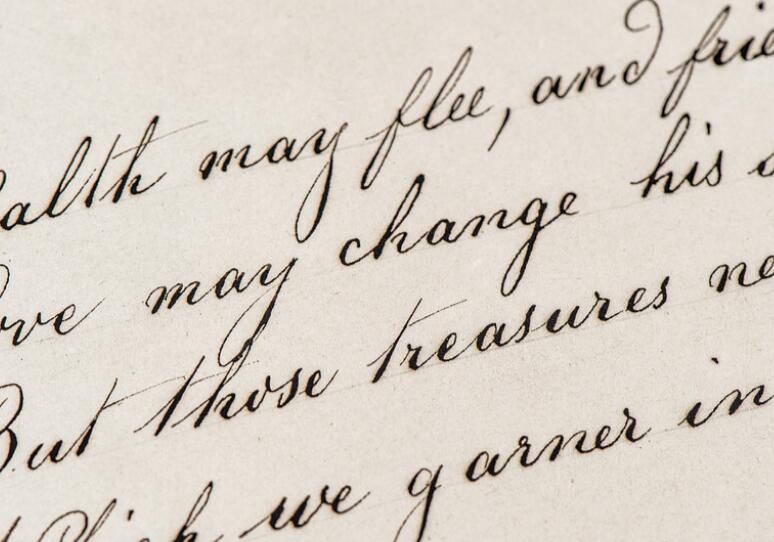 ealth may flee, and frie
ove may change his s
But those treasures ne
Which we garner in